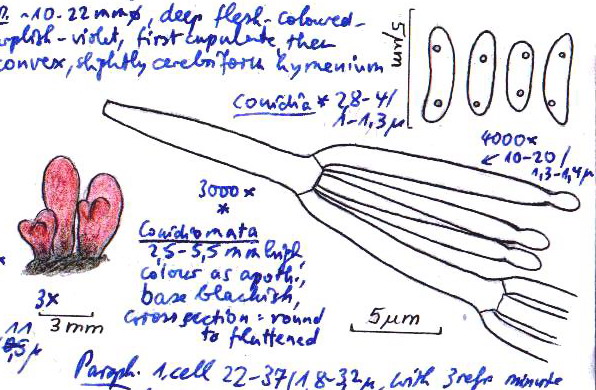 ~10-22 mmø, deep flesh-coloured-
rplish-violet, first cupulate, then
convex, slightly cerebriform hymenium
5µm
Conidia * 2,8-4/
1-1,3µ
4000x
10-20/
1,3-1,4µ
3000x
*
Conidiomata
2,5-5,5 mm high,
colour as apoth.,
base blackish,
cross section = round
to flattened
3x
3mm
5µm
11
Paraph. 1.cell 22-37/1,8-3,2µ, with 3 refr. minute